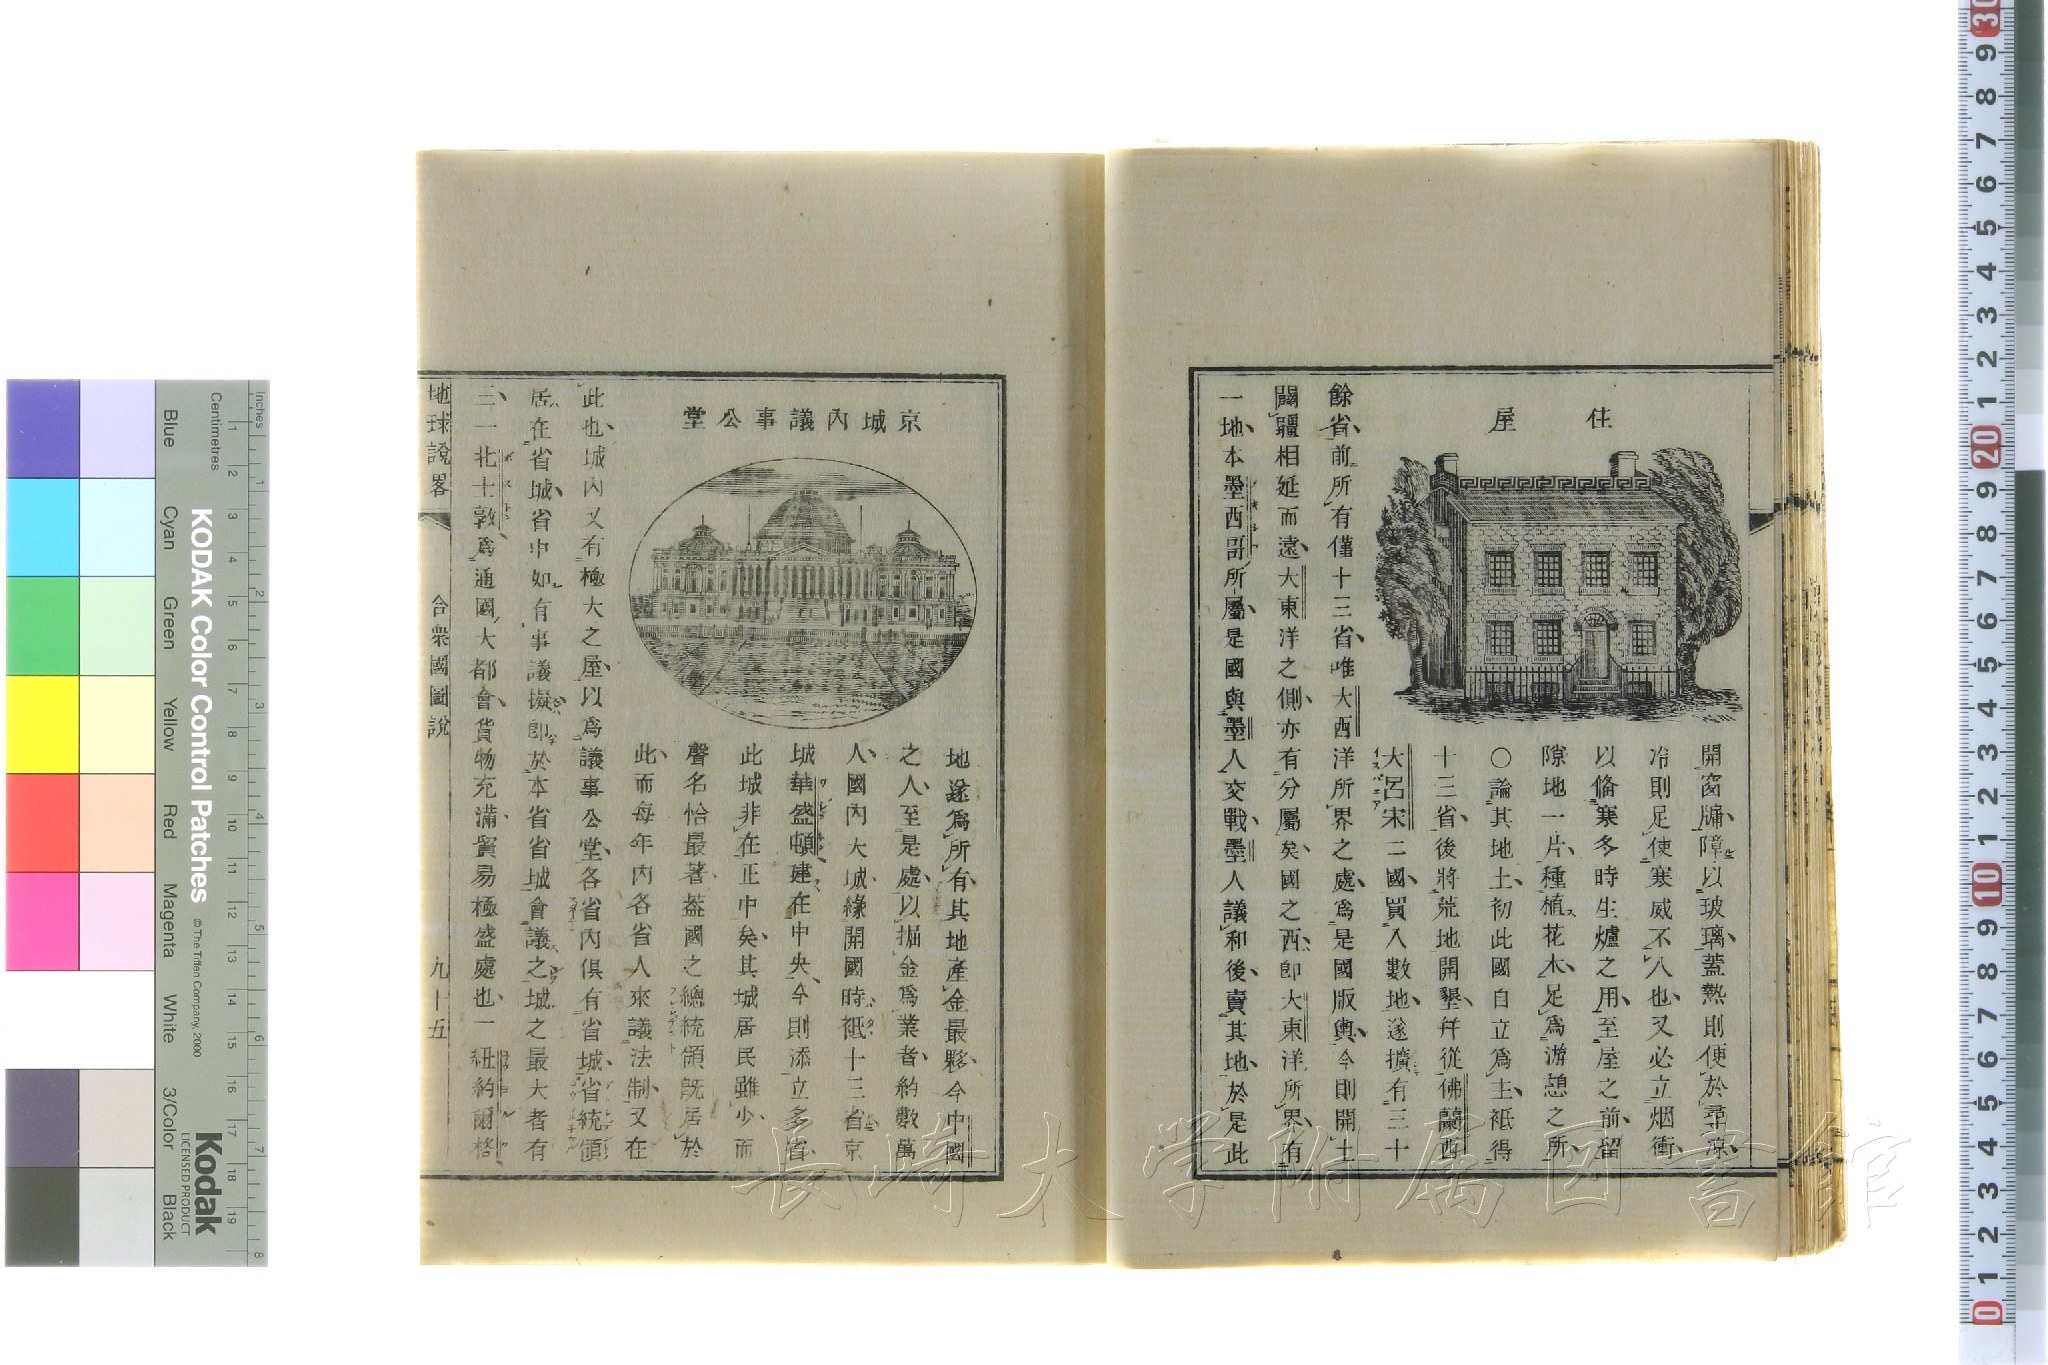 住屋
開窗牖障以玻璃蓋熱則便於尋涼
冷則足使寒威不入也又必立烟衝
以備寒冬時生爐之用至屋之前留
隙地一片種植花木足爲游憩之所
〇論其地土初此國自立爲主祗得
十三省後將荒地開墾幷從佛蘭西
大呂宋二國買入數地遂擴有三十
餘省前所有僅十三省唯大西洋所界之處爲是國版輿今則開土
闢疆相延而遠大東洋之側亦有分屬矣國之西卽大東洋所界有
一地本墨西哥所屬是國與墨人交戰墨人議和後賣其地於是此
京城內議事公堂
地遂爲所有其地產金最夥今中國
之人至是處以掘金爲業者約數萬
人國內大城緣開國時祗十三省京
城華盛頓建在中央今則添立多省
此城非在正中矣其城居民雖少而
聲名恰最著蓋國之總統領旣居於
此而每年內各省人來議法制又在
此也城內又有極大之屋以爲議事公堂各省內俱有省城省統領
居在省城省中如有事議擬卽於本省省城會議之城之最大者有
三一北士敦爲通國大都會貨物充滿貿易極盛處也一紐約爾格
地球說畧 合衆國圖說 九十五
長崎大学附属図書館
KODAK Color Control Patches
© The Tiffen Company, 2000
Kodak
LICENSED PRODUCT
Blue Cyan Green Yellow Red Magenta White 3/Color Black
Centimetres 1 2 3 4 5 6 7 8 9 10 11 12 13 14 15 16 17 18 19
Inches 1 2 3 4 5 6 7 8
30 9 8 7 6 5 4 3 2 1 20 9 8 7 6 5 4 3 2 1 10 9 8 7 6 5 4 3 2 1 0